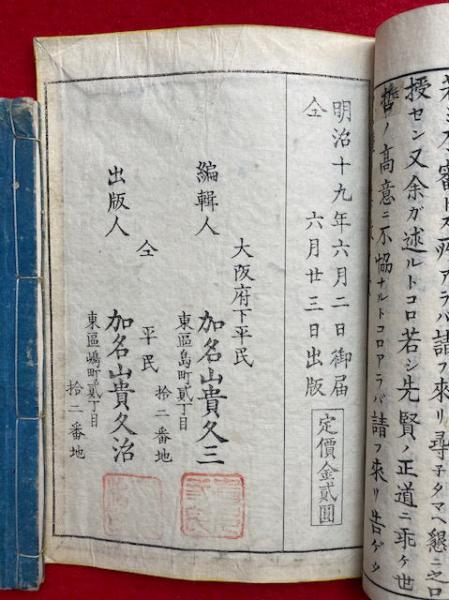 若シ不審トスル所アラバ請フ來リ尋子タマヘ懇ニ之口
授セン又余ガ述ルトコロ若シ先賢ノ正道ニ乖ケ世
哲ノ高意ニ不協ナルトコロアラバ請フ來リ告ゲ
明治十九年六月二日御届
仝 六月廿三日出版
定價金貳圓
大阪府下平民
編輯人 加名山貴久三
東區島町貳丁目
拾二番地
仝 平民
出版人 加名山貴久治
東區嶋町貳丁目
拾二番地